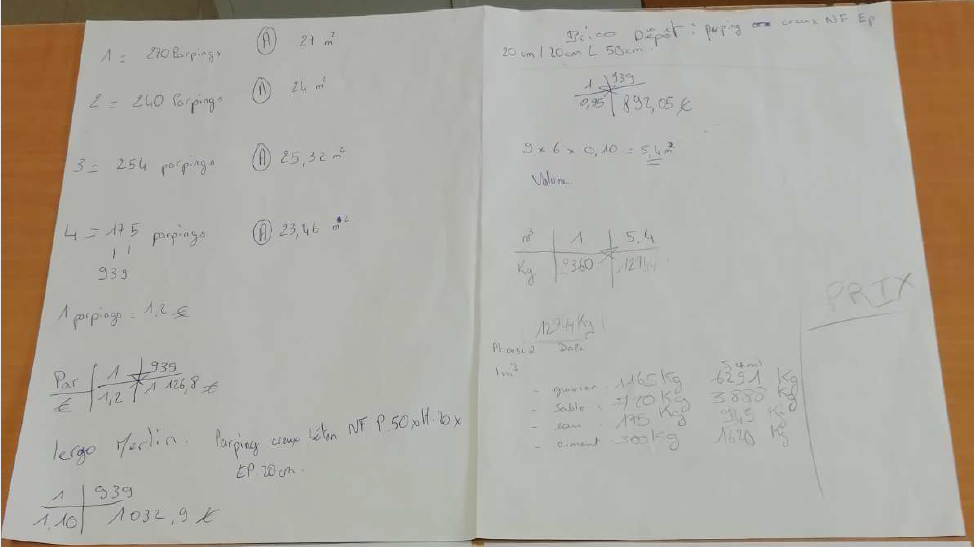 1 = 270 Parpings (A) 27 m²
2 = 240 Parpings (A) 24 m²
3 = 254 parpings (A) 25,32 m²
4 = 175 parpings (A) 23,46 m²
939
1 parpings = 1,2 €
Par | 1 | 939
€ | 1,2 | 1 126,8 €
lergo Merlin. Parping creux béton NF P.50xH.20x
EP 20cm.
1 | 939
1.10 | 1032,9 €
Brico Dépôt : parping creux NF Ep
20 cm / 20cm L 50cm
1 | 939
0,95 | 892,05 €
9 x 6 x 0,10 = 5,4 m³
Volume
m³ | 1 | 5.4
Kg | 2360
PRIX
127,4 Kg
Phase 2 Dalle
1m³ 5,4m³
- gravier : 1165 Kg 6291 Kg
- sable : 720 Kg 3888 Kg
- eau : 175 Kg 945 Kg
- ciment : 300 Kg 1620 Kg